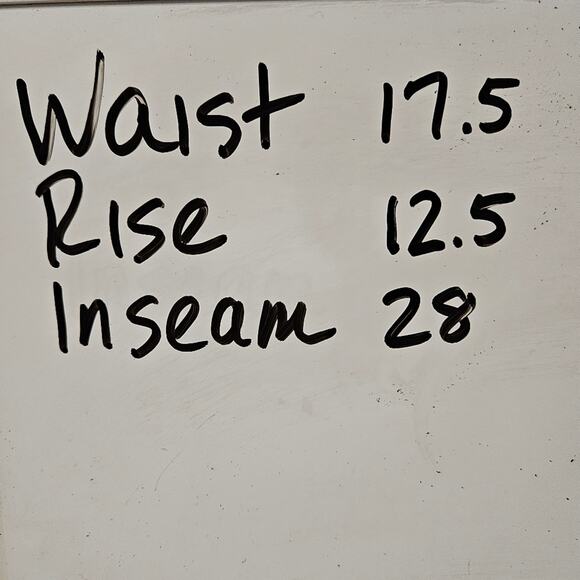 Waist 17.5
Rise 12.5
Inseam 28